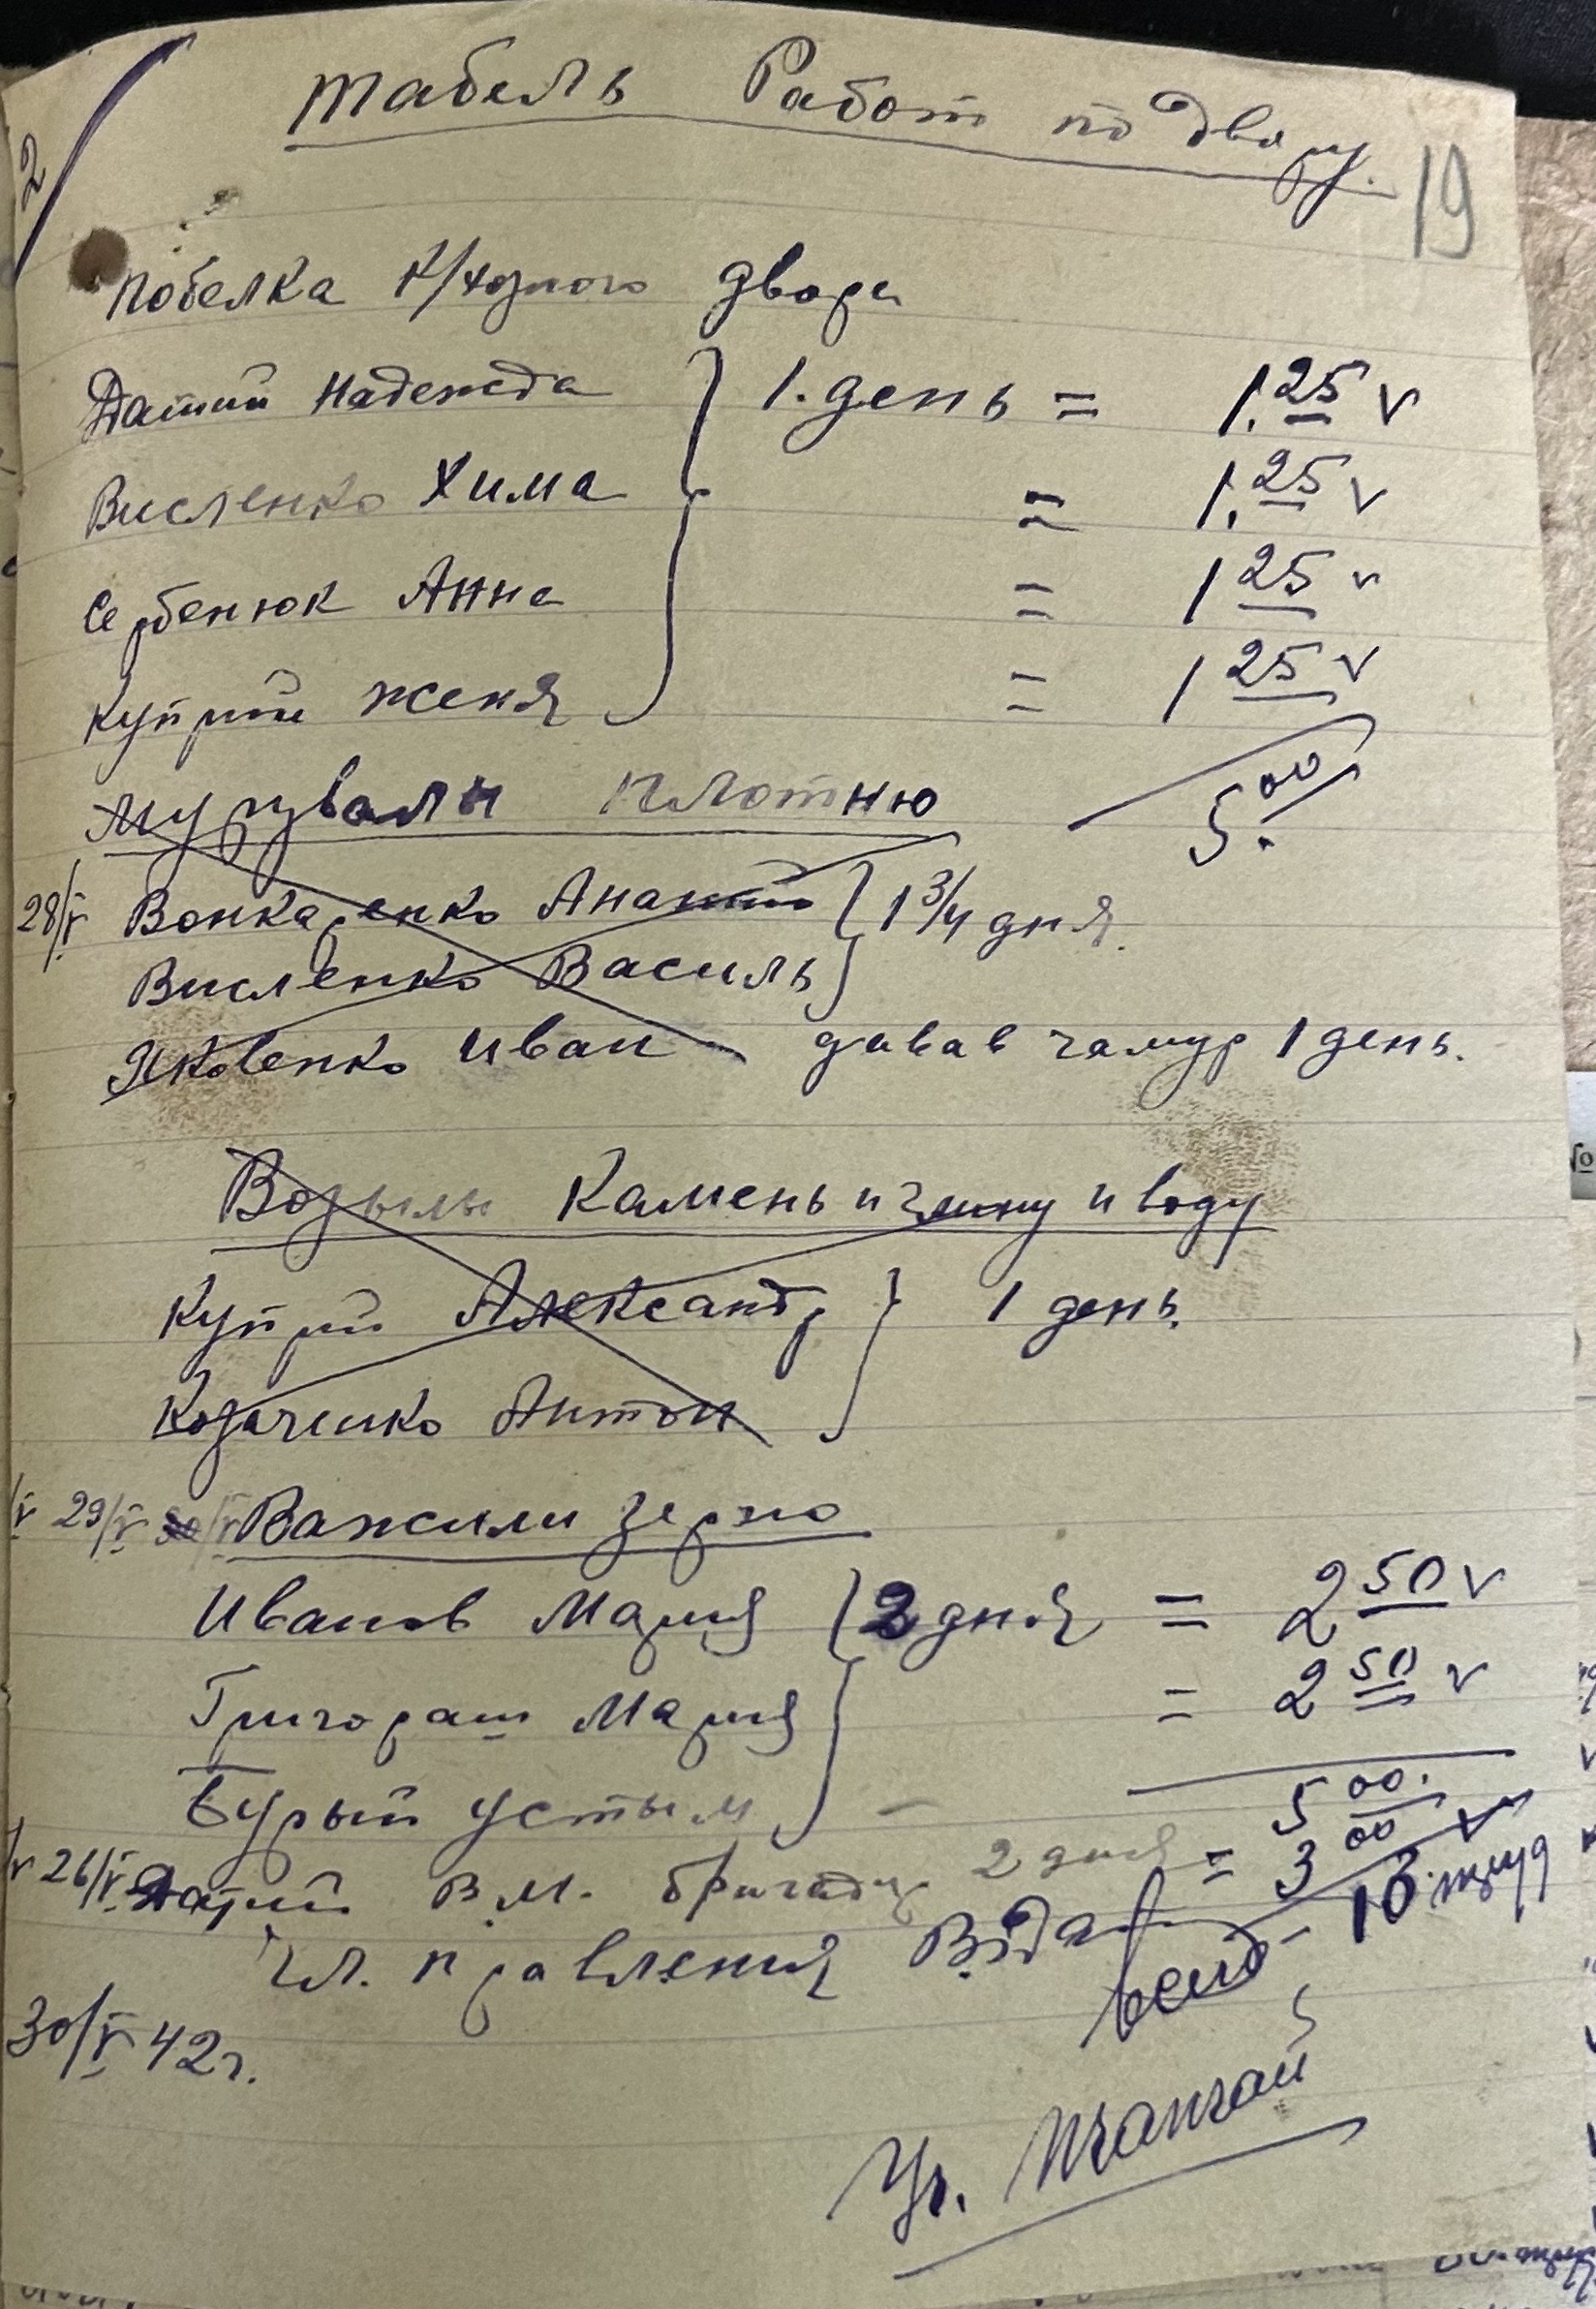 Табель Работ по двору.
19
2
Побелка К/ходного двора
Датий Надежда } 1. день = 1.25 v
Висленко Хима = 1.25 v
Сербенюк Анна = 1 25 v
Куприй Женя = 1 25 v
5.00
Мурували плотню
28/V Вонкаренко } 1 3/4 дня.
Висленко Василь
Яковенко Иван давав чамур 1 день.
Возылы Камень и глину и воду
Куприй Александр } 1 день.
Козаченко Антон
29/V 30/V Важили зерно
Иванов Мария } 2 дня = 2 50 v
Григораш Мария = 2 50 v
Бурый Устым - 5 00.
26/V Датий В.М. бригадир 2 дня = 3 00 v
Чл. правления
всего - 13 труд
30/V 42г.
Уч.